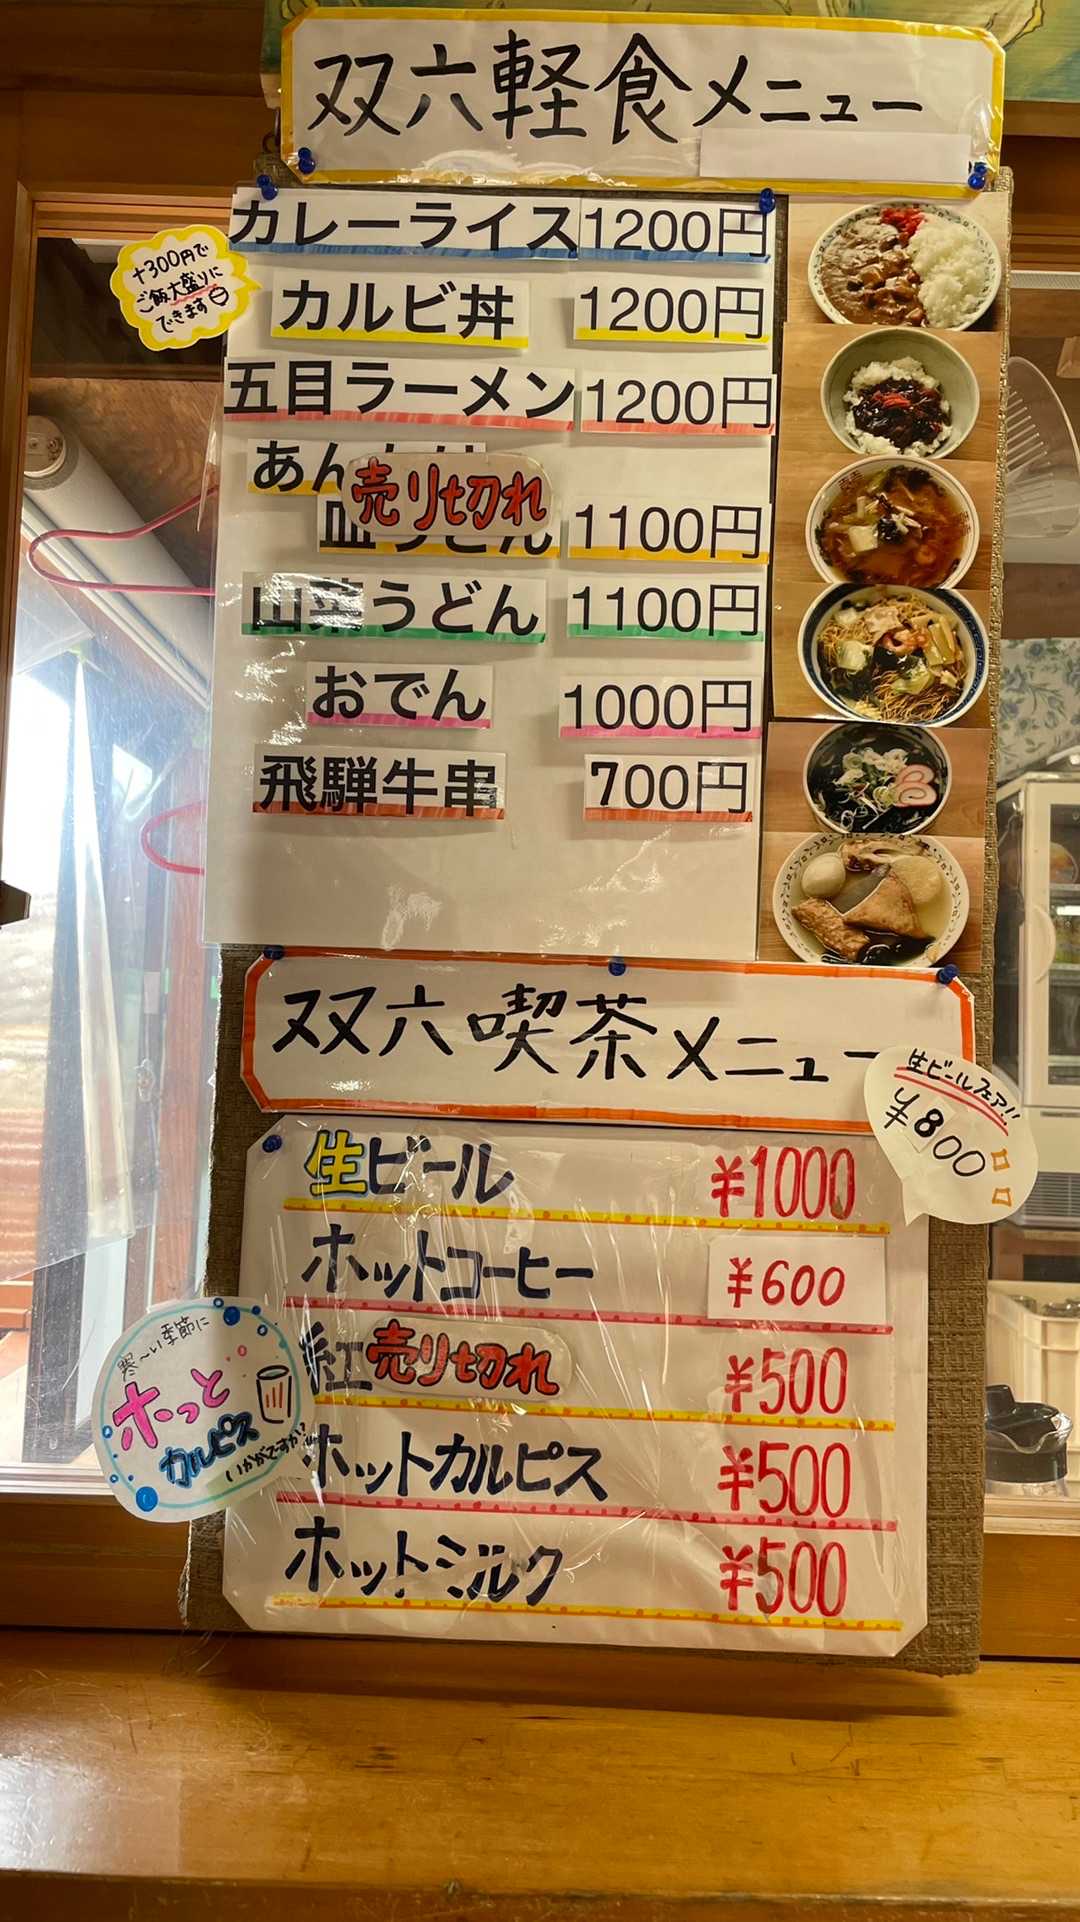 双六軽食メニュー
+300円で
ご飯大盛りに
できます
カレーライス 1200円
カルビ丼 1200円
五目ラーメン 1200円
あん
売り切れ
皿うどん 1100円
山菜うどん 1100円
おでん 1000円
飛騨牛串 700円
双六喫茶メニュー
生ビールフェア!!
¥800
生ビール ¥1000
ホットコーヒー ¥600
紅 売り切れ ¥500
ホットカルピス ¥500
ホットミルク ¥500
寒〜い季節に
ホっと
カルピス
いかがですか?